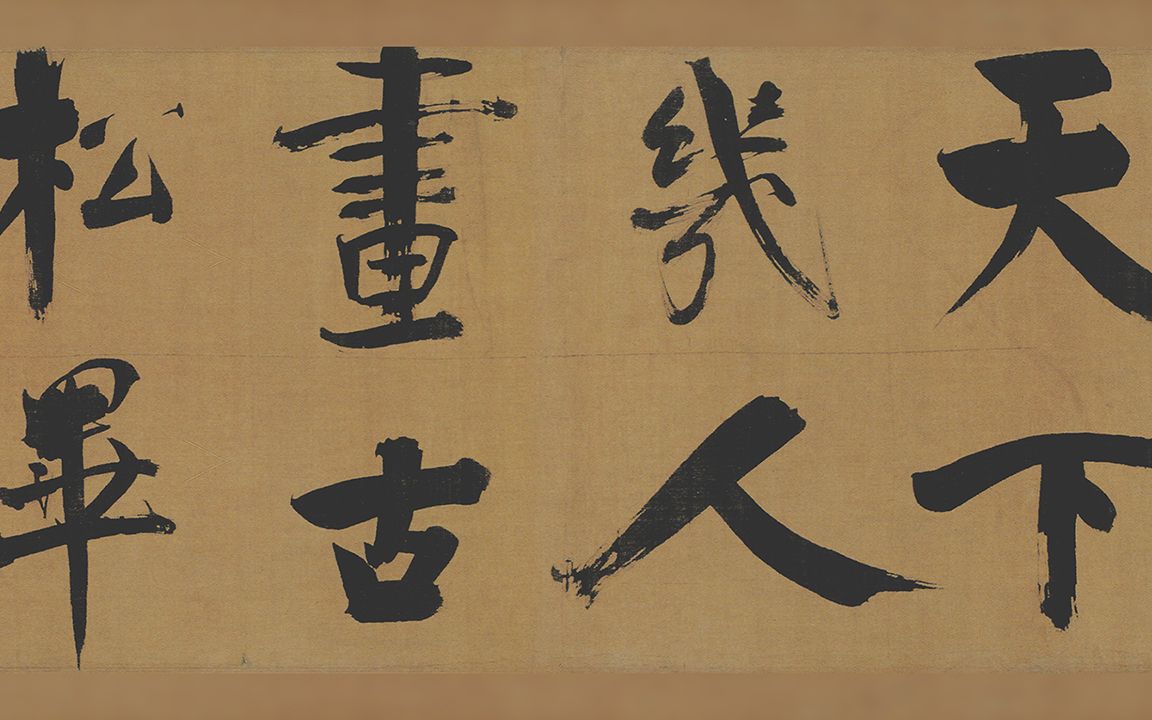 天下
幾人
畫古
松畢